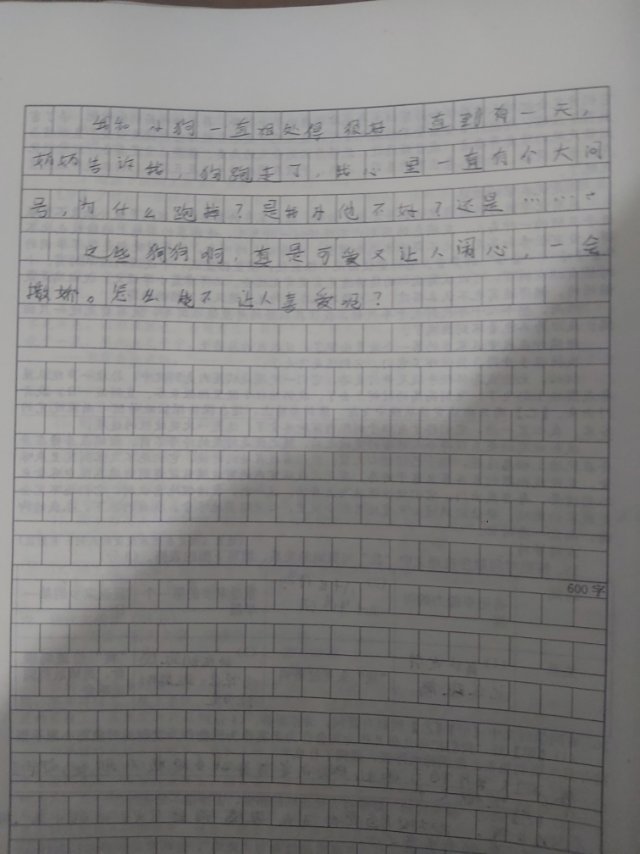 我和小狗一直相处得很好，直到有一天，
奶奶告诉我，狗跑走了，我心里一直有个大问
号，为什么跑掉？是我对他不好？还是……。
这些狗狗啊，真是可爱又让人闹心，一会
撒娇。怎么能不让人喜爱呢？
600字